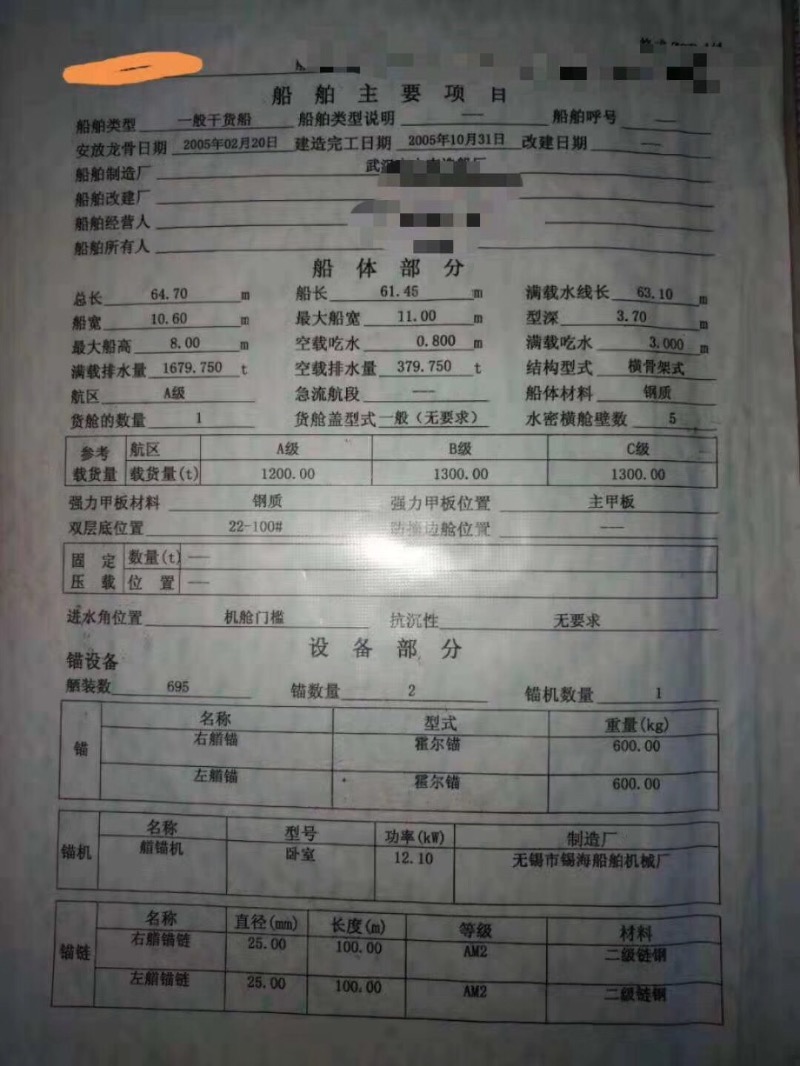 船舶主要项目
船舶类型 一般干货船 船舶类型说明 — 船舶呼号 —
安放龙骨日期 2005年02月20日 建造完工日期 2005年10月31日 改建日期 —
船舶制造厂
船舶改建厂
船舶经营人
船舶所有人
船体部分
总长 64.70 m 船长 61.45 m 满载水线长 63.10 m
船宽 10.60 m 最大船宽 11.00 m 型深 3.70 m
最大船高 8.00 m 空载吃水 0.800 m 满载吃水 3.000 m
满载排水量 1679.750 t 空载排水量 379.750 t 结构型式 横骨架式
航区 A级 急流航段 — 船体材料 钢质
货舱的数量 1 货舱盖型式 一般（无要求） 水密横舱壁数 5
参考 航区 A级 B级 C级
载货量 载货量(t) 1200.00 1300.00 1300.00
强力甲板材料 钢质 强力甲板位置 主甲板
双层底位置 22-100# 边舱位置 —
固定 数量(t) —
压载 位置 —
进水角位置 机舱门槛 抗沉性 无要求
设备部分
锚设备
舾装数 695 锚数量 2 锚机数量 1
名称 型式 重量(kg)
锚 右艏锚 霍尔锚 600.00
左艏锚 霍尔锚 600.00
名称 型号 功率(kW) 制造厂
锚机 艏锚机 卧室 12.10 无锡市锡海船舶机械厂
名称 直径(mm) 长度(m) 等级 材料
锚链 右艏锚链 25.00 100.00 AM2 二级链钢
左艏锚链 25.00 100.00 AM2 二级链钢